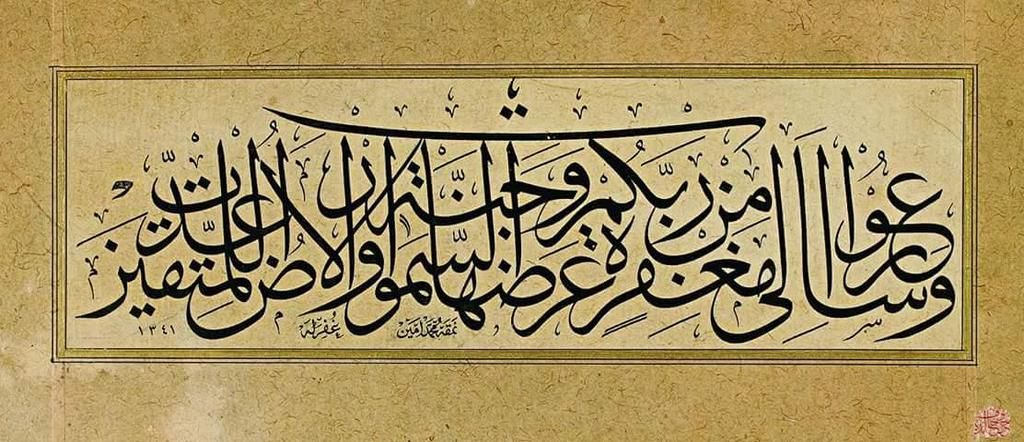 وسارعوا الى مغفرة من ربكم وجنة عرضها السموات والارض اعدت للمتقين
نمقه محمد امين غفر له
١٣٤١